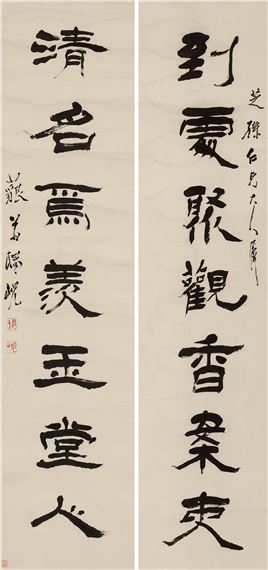 到處聚觀香案吏
芝孫仁兄大人屬
清名爲羨玉堂人
藐翁楊峴